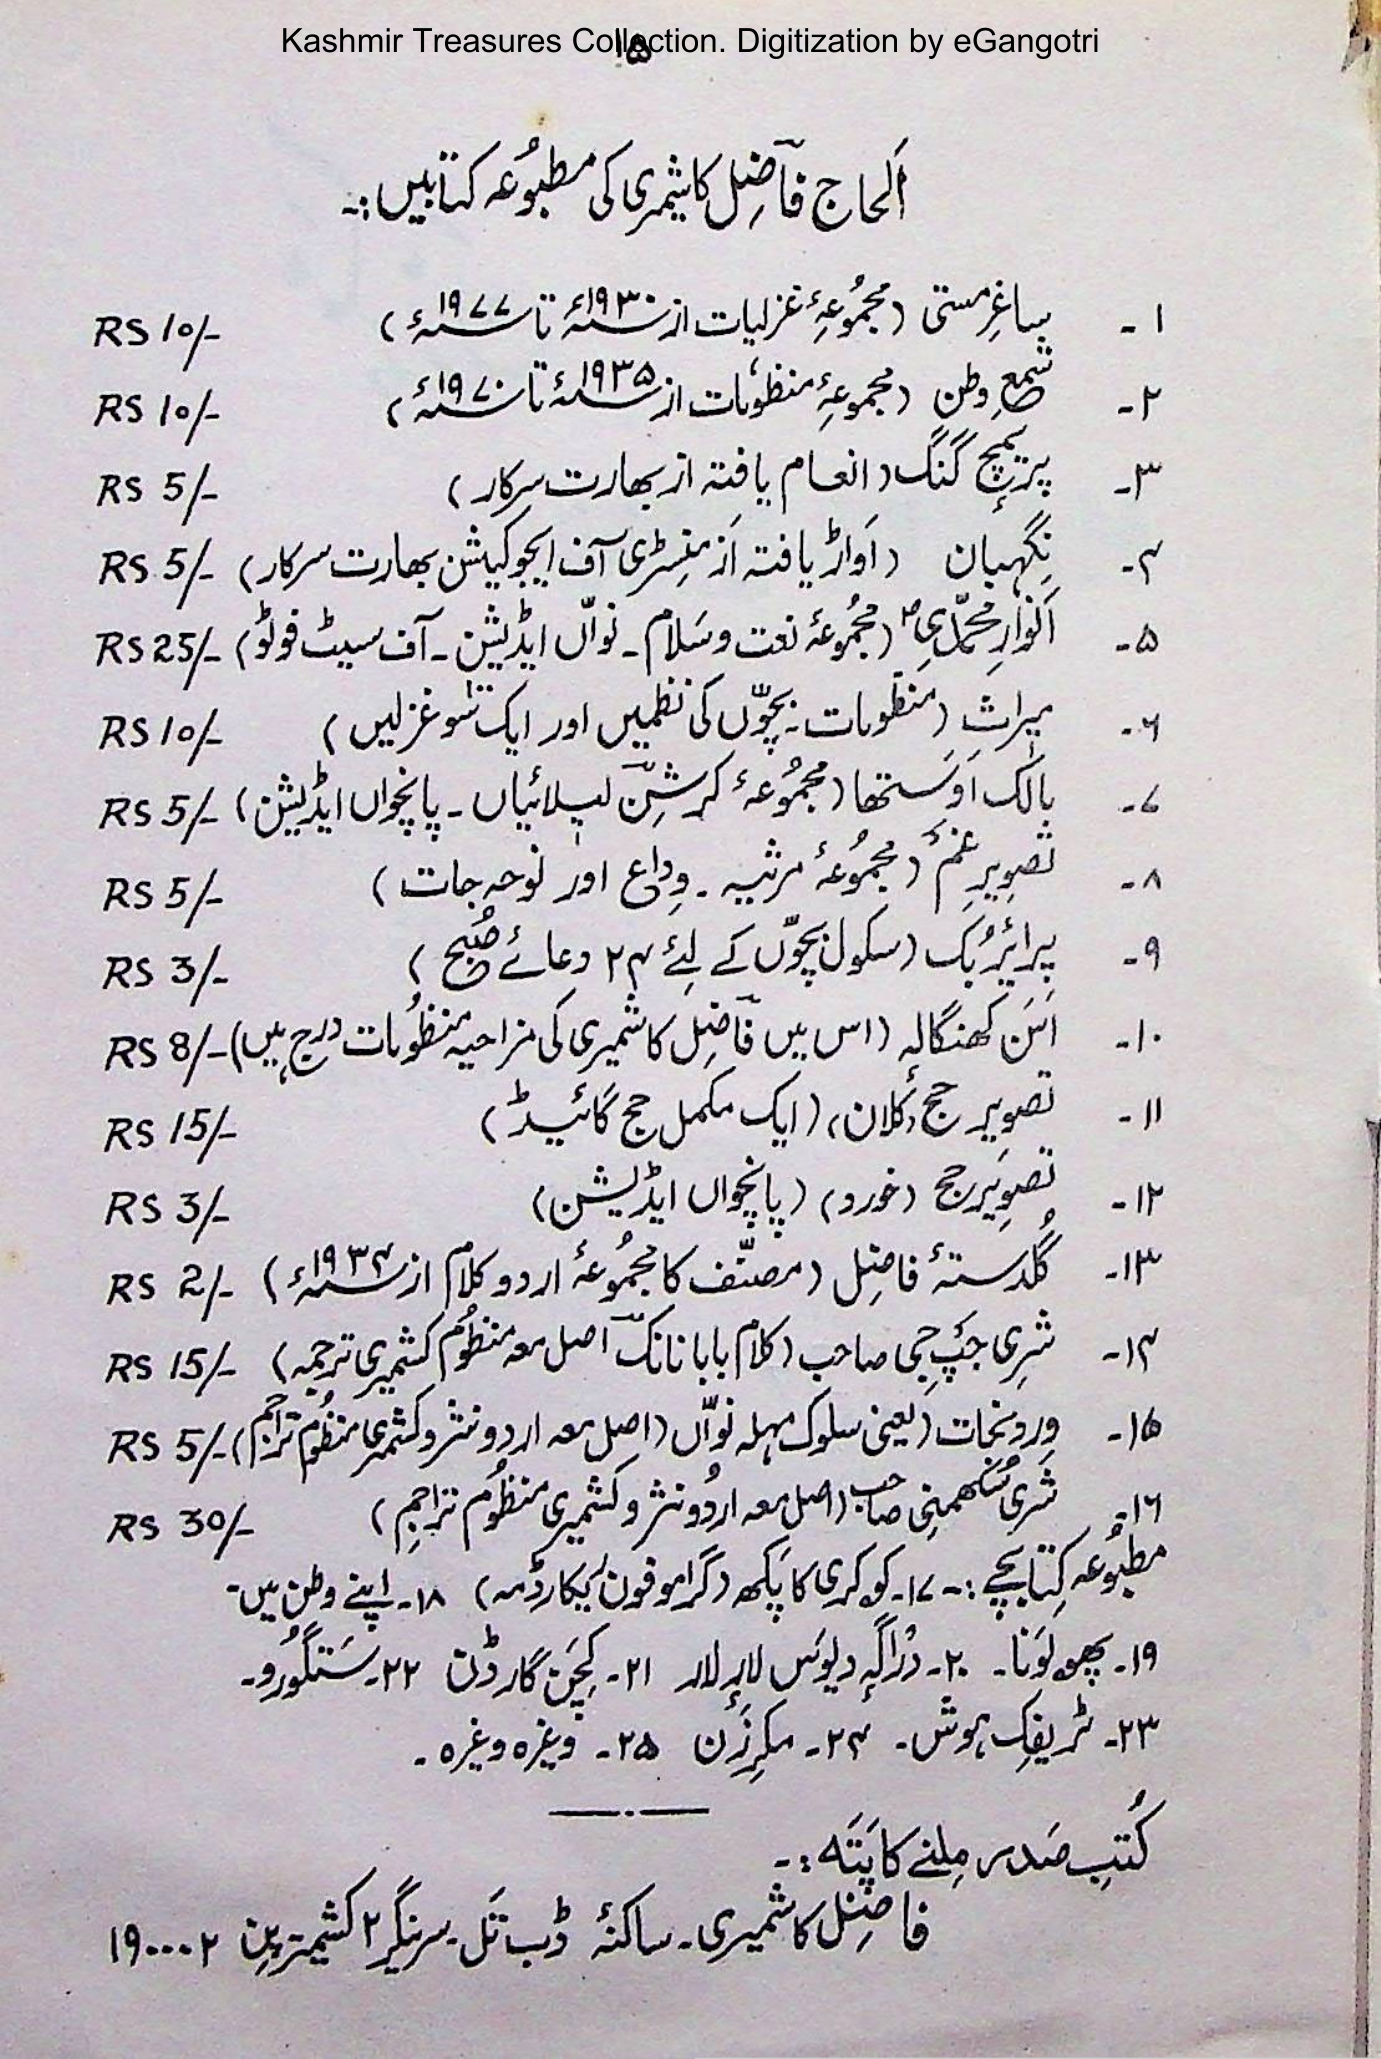 Kashmir Treasures Collection. Digitization by eGangotri
۱۵
اَلحاج فاضِل کاشمیری کی مطبُوعہ کتابیں:۔
۱۔ ساغرِ مستی (مجمُوعہِٴ غزلیات از ۱۹۳۰ء تا ۱۹۷۷ء) RS 10/-
۲۔ شمعِ وطن (مجموعہِٴ منظوُمات از ۱۹۳۵ء تا ۱۹۷۰ء) RS 10/-
۳۔ پریمچ گَنگ (انعام یافتہ از بھارت سرکار) RS 5/-
۴۔ نِگہبان (اَواڑ یافتہ اَز منِسٹری آف ایجوکیشن بھارت سرکار) RS 5/-
۵۔ اَنوارِ محمّدیؐ (مجمُوعہٴ نعت و سَلام۔ نواّں ایڈیشن۔ آف سیٹ فوٹو) RS 25/-
۶۔ میراث (منظوُمات۔ بچوّں کی نظمیں اور ایک سَو غزلیں) RS 10/-
۷۔ بالک اَوَستھا (مجمُوعہٴ کرشِن لیلائیاں۔ پانچواں ایڈیشن) RS 5/-
۸۔ تصوِیرِ غم (مجمُوعہٴ مرثیہ۔ وِداع اور نوحہ جات) RS 5/-
۹۔ پرائیر بُک (سکول بچوّں کے لئے ۲۴ دعائے صُبح) RS 3/-
۱۰۔ اَسَن کھنگالہٕ (اس میں فاضِل کاشمیری کی مزاحیہ منظوُمات درج ہیں) RS 8/-
۱۱۔ تصویرِ حج (کلان) (ایک مکمل حج گائیڈ) RS 15/-
۱۲۔ تصوِیرِ حج (خورد) (پانچواں ایڈیشن) RS 3/-
۱۳۔ گُلدستہٴ فاضِل (مصنّف کا مجمُوعہٴ اردو کلام از ۱۹۳۴ء) RS 2/-
۱۴۔ شری جَپ جی صاحب (کلام بابا نانک اصل معہ منظوُم کشمیری ترجمہ) RS 15/-
۱۵۔ وِردِ نجات (یعنی سلوک مہلہ نواّں (اصل معہ اردو نثر و کشمیری منظوُم تراجم) RS 5/-
۱۶۔ شری سُکھمنی صاحب (اصل معہ اردُو نثر و کشمیری منظوُم تراجم) RS 30/-
مطبُوعہ کِتابچے:۔ ۱۷۔ کوکری کا پَکھ (گراموفون ریکارڈ معہ) ۱۸۔ اپنے وطن میں۔
۱۹۔ پھولوَنا۔ ۲۰۔ دَراگہٕ دیوَس لارٕ لار ۲۱۔ کِچَن گارڈن ۲۲۔ سَتگورو۔
۲۳۔ ٹریفِک ہوش۔ ۲۴۔ مکرِزَن ۲۵۔ وغیرہ وغیرہ۔
کُتبِ صَدر مِلنے کا پَتَہ:۔
فاضِل کاشمیری۔ ساکنہٴ ڈب تَل۔ سرینگر ۲ کشمیر پِن ۱۹۰۰۰۲